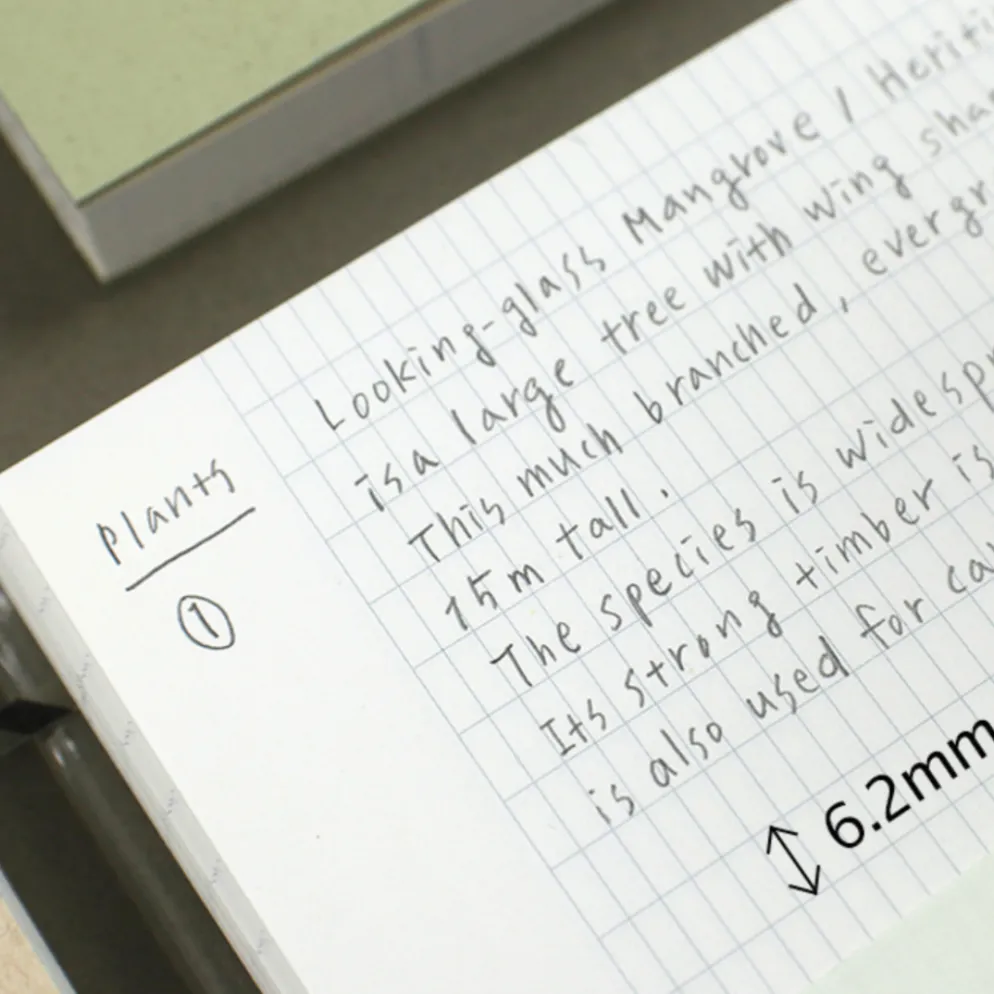 Plants
①
Looking-glass Mangrove / Heriti
is a large tree with wing sha
This much branched, evergr
15m tall.
The species is widespr
Its strong timber is
is also used for ca
6.2mm